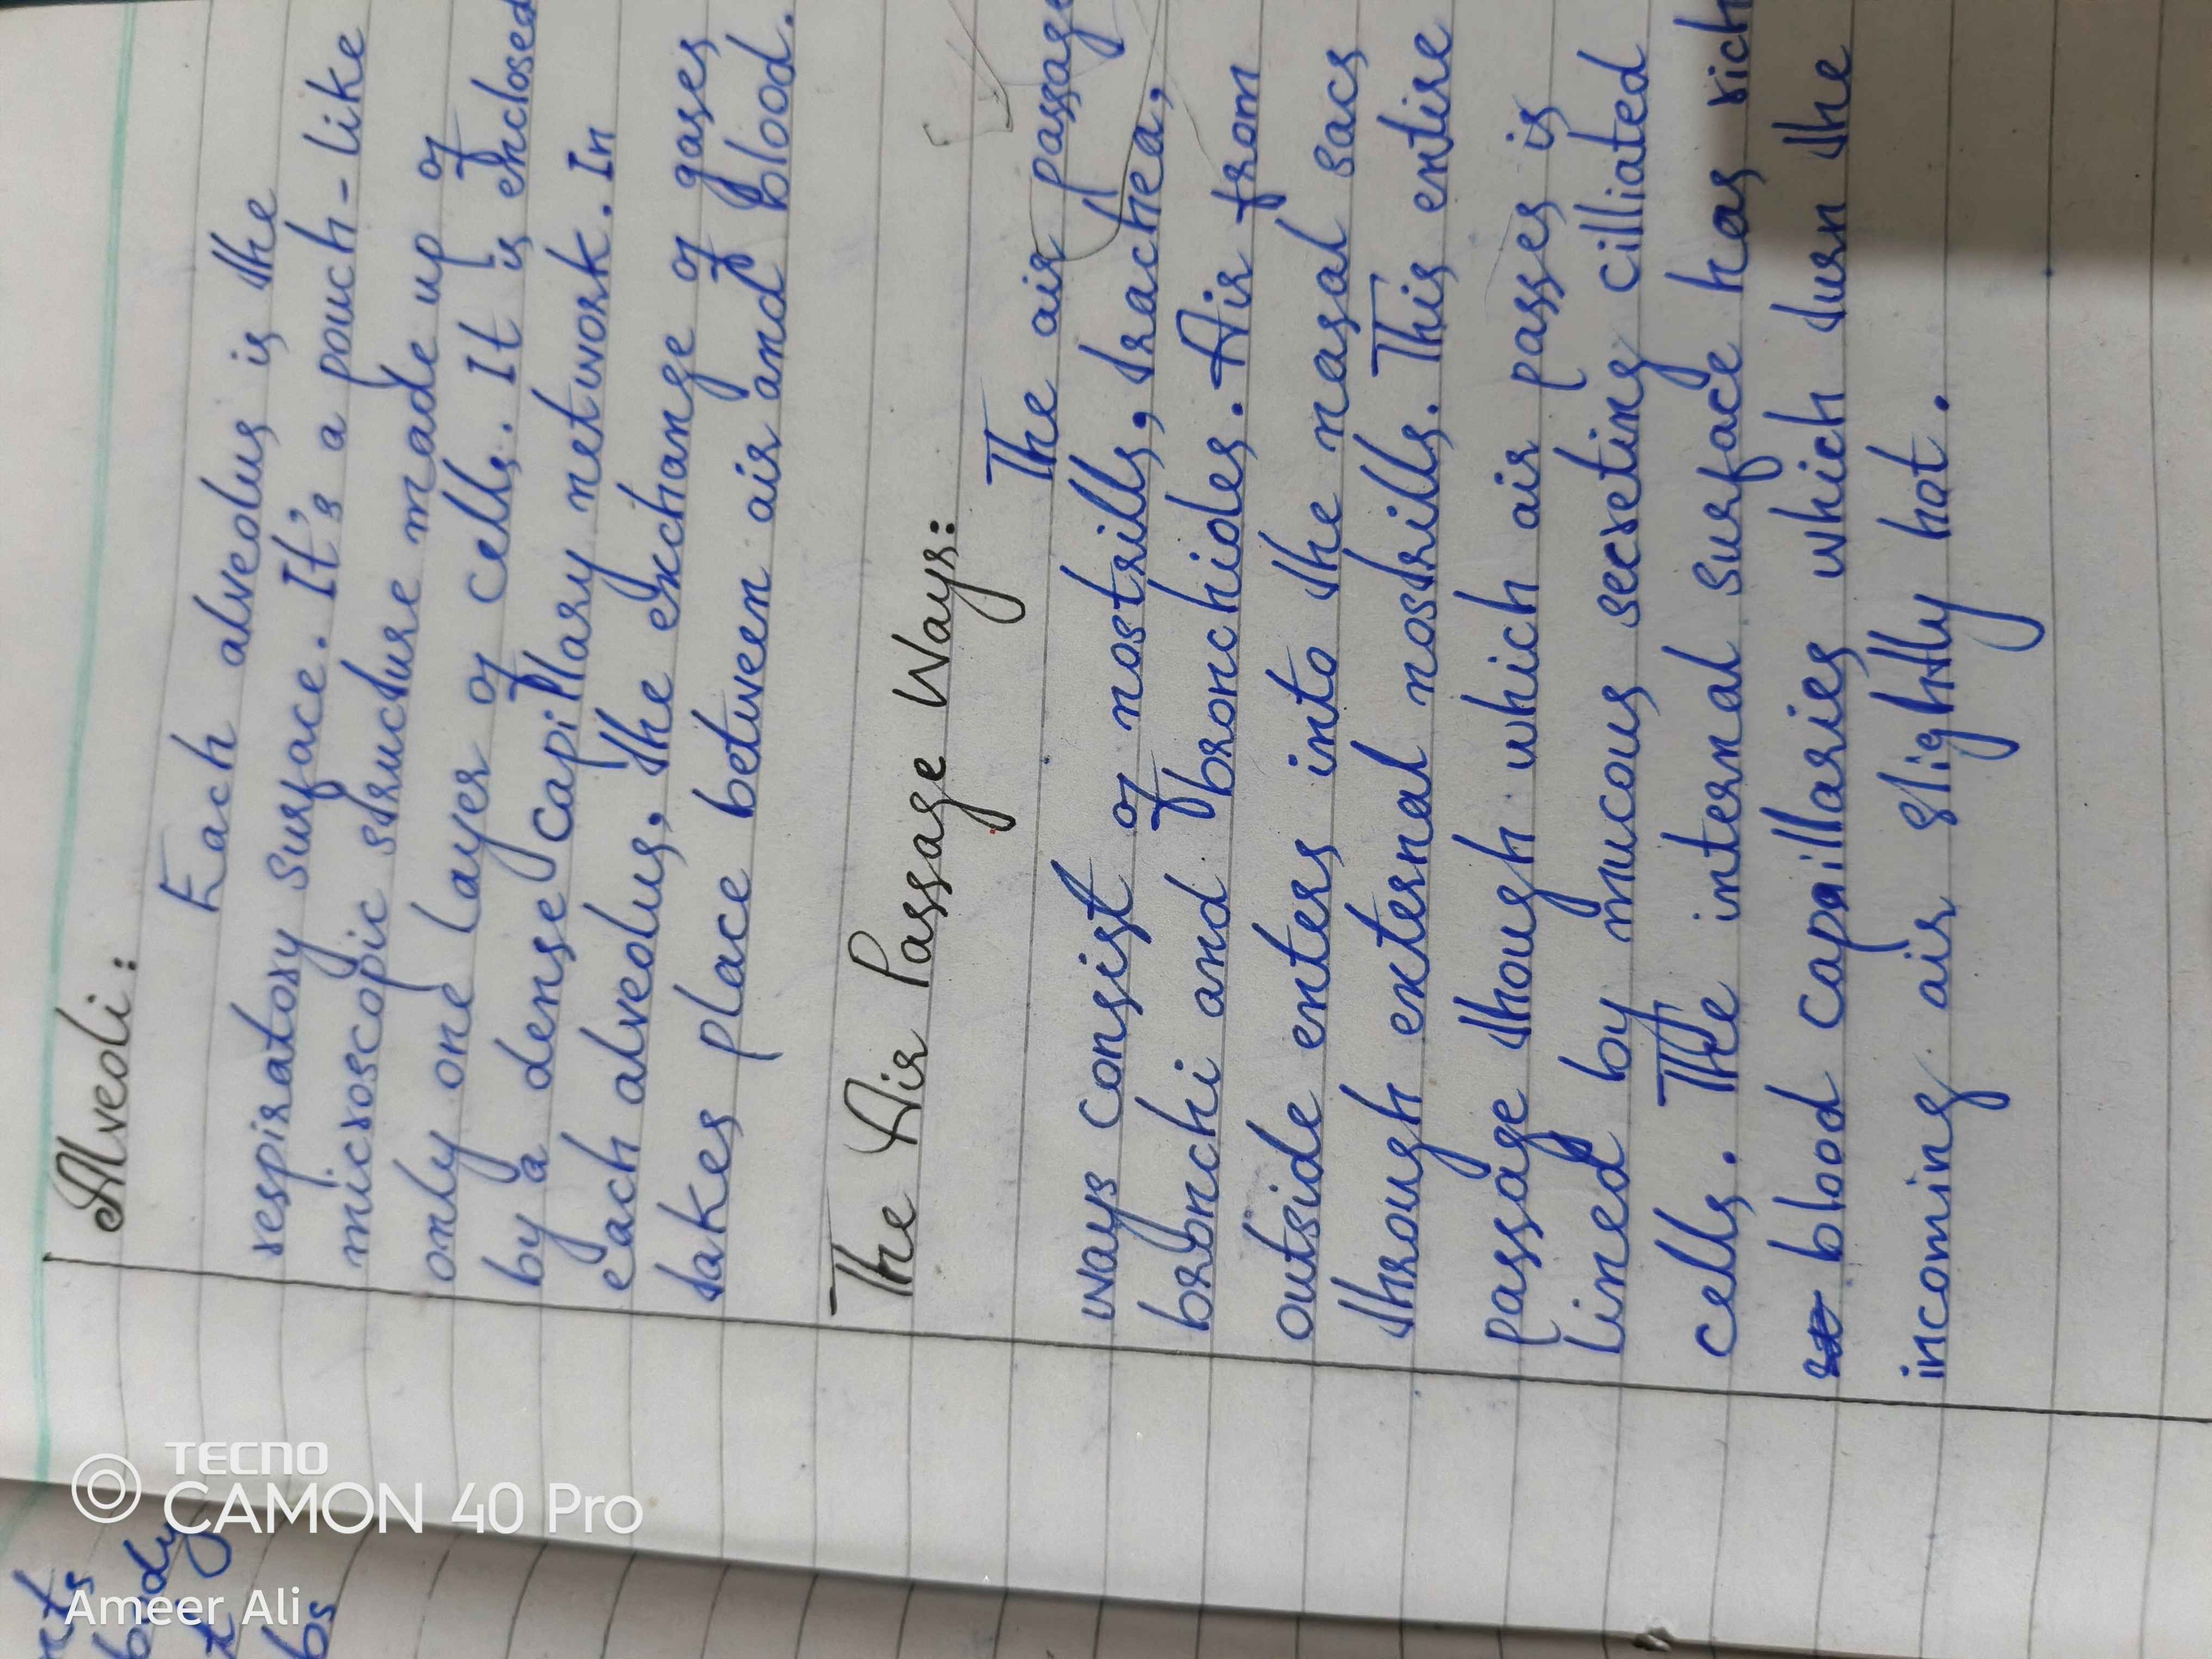 Alveoli:
Each alveolus is the
respiratory surface. It's a pouch-like
microscopic structure made up of
only one layer of cells. It is enclosed
by a dense capillary network. In
each alveolus, the exchange of gases
takes place between air and blood.
The Air Passage Ways:
The air passage
ways consist of nostrills, trachea,
bronchi and bronchioles. Air from
outside enters into the nasal sacs
through external nostrills. This entire
passage though which air passes is
lined by mucous secreting cilliated
cells. The internal surface has rich
blood capaillaries which turn the
incoming air slightly hot.
TECNO
© CAMON 40 Pro
Ameer Ali
body